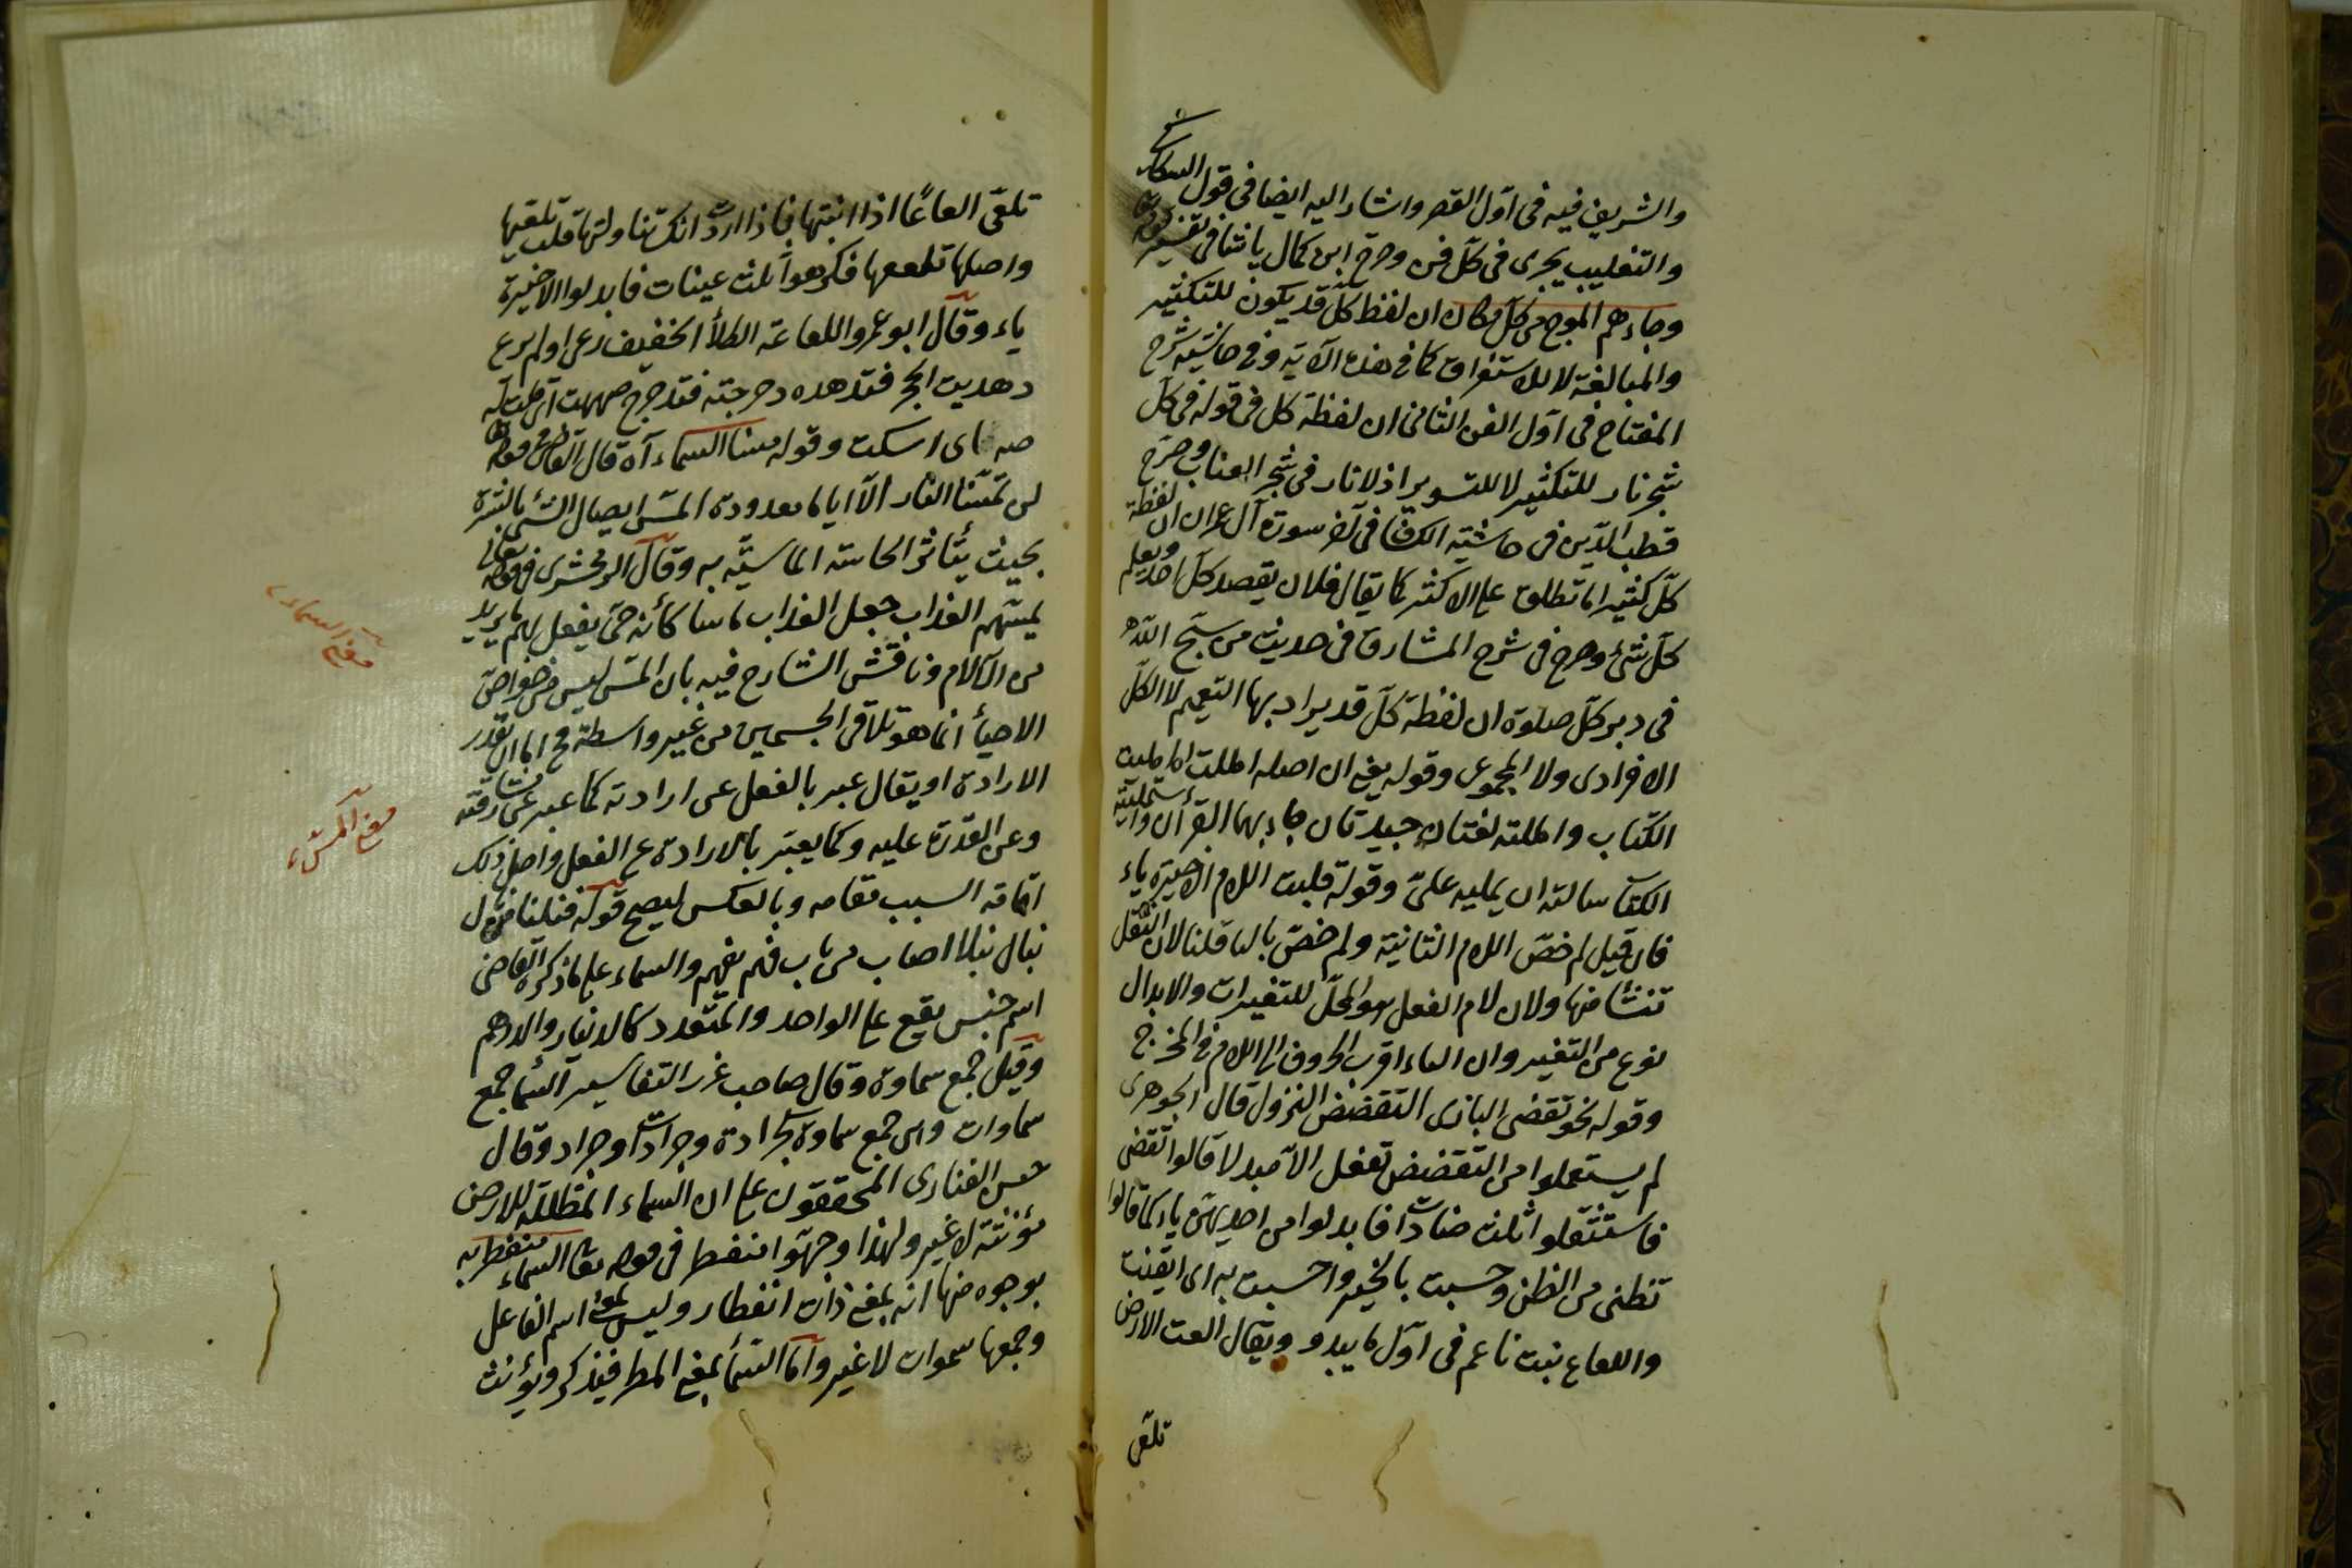 والشريف فيه فى اوّل القصر واشار اليه ايضا فى قول السكاكى
والتغليب يجرى فى كلّ فن وصرح ابن كمال باشا فى تفسير قوله
وجاءهم الموج من كلّ مكان ان لفظ كلّ قد يكون للتكثير
والمبالغة لا للاستغراق كما فى هذه الآية وفى حاشية شرح
المفتاح فى اوّل الفن الثانى ان لفظة كل فى قوله فى كلّ
شجر نار للتكثير لا للتسوير اذ لا نار فى شجر العناب وصرّح
قطب الدّين فى حاشية الكشاف فى آخر سورة آل عمران ان لفظة
كلّ كثيرا ما تطلق على الاكثر كما يقال فلان يقصد كلّ احد ويعلم
كلّ شئ وصرح فى شرح المشارق فى حديث من سبّح اللّه
فى دبر كلّ صلوة ان لفظة كلّ قد يراد بها التعميم لا الكلّ
الافرادى ولا المجموعى وقوله يعنى ان اصله امللت امليت
الكتاب وامللته لغتان جيدتان جاء بهما القرآن واستمليته
الكتاب سالته ان يمليه علىّ وقوله قلبت اللام الاخيرة ياء
فان قيل لم خصّ اللام الثانية ولم خصّ بالياء قلنا لان الثقل
تنشأ منها ولان لام الفعل هو المحلّ للتغيرات والابدال
نوع من التغيير وان الياء اقرب الحروف الى اللام فى المخرج
وقوله نحو تقضى البازى التقضض النزول قال الجوهرى
لم يستعملوا من التقضض تفعل الا مبدلا قالوا تقضى
فاستثقلوا ثلث ضادات فابدلوا من احديهن ياء كما قالوا
تظنى من الظن وحسبت بالخير واحسبت به اى ايقنت
واللعاع نبت ناعم فى اوّل ما يبدو ويقال العت الارض
تلعى
تلعى العاعًا اذا انبتها فاذا اردت انك تناولتها قلت تلعيتها
واصلها تلععها فكرهوا ثلث عينات فابدلوا الاخيرة
ياء وقال ابو عمرو اللعاعة الكلأ الخفيف رعى او لم يرع
دهديت الحجر فتدهده دحرجته فتدحرج صهصهت اى قلت له
صه اى اسكت وقوله مسنا السماء آه قال القاضى فى قوله
لن تمسّنا النار الّا اياما معدودة المسّ ايصال الشئ بالبشرة
بحيث يتأثر الحاسة الماسيّة به وقال الزمخشرى فى قوله تعالى
يمسّهم العذاب جعل العذاب ماسا كأنه حىّ يفعل بهم ما يريد
من الآلام وناقش الشارح فيه بان المسّ ليس من خواصّ
الاحياء انما هو تلاقى الجسمين من غير واسطة فح اما ان تقدر
الارادة او يقال عبر بالفعل عن ارادته كما عبر عن مشارفته
وعن القدرة عليه وكما يعبّر بالارادة عن الفعل واصل ذلك
اقامة السبب مقامه وبالعكس ليصح قوله فنلنا من نال
ينال نيلا اصاب من باب فهم يفهم والسماء على ما ذكره القاضى
اسم جنس يقع على الواحد والمتعدد كالدينار والدرهم
وقيل جمع سماوة وقال صاحب غرر التفاسير السّما جمع
سماوات وهى جمع سماوة كجرادة وجرادات وجراد وقال
حسن الفنارى المحققون على ان السماء المظللة للارض
مؤنثة لا غير ولهذا وجهوا منفطر فى قوله تعالى السماء منفطر به
بوجوه منها انه بمعنى ذات انفطار وليس بمعنى اسم الفاعل
وجمعها سموات لا غير وامّا السّماء بمعنى المطر فيذكر ويؤنث
معنى السماء
معنى المسّ